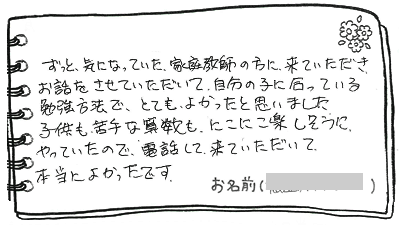 ずっと、気になっていた、家庭教師の方に、来ていただき
お話をさせていただいて、自分の子に合っている
勉強方法で、とても、よかったと思いました
子供も、苦手な算数も、にこにこ楽しそうに、
やっていたので、電話して、来ていただいて、
本当によかったです。
お名前( )